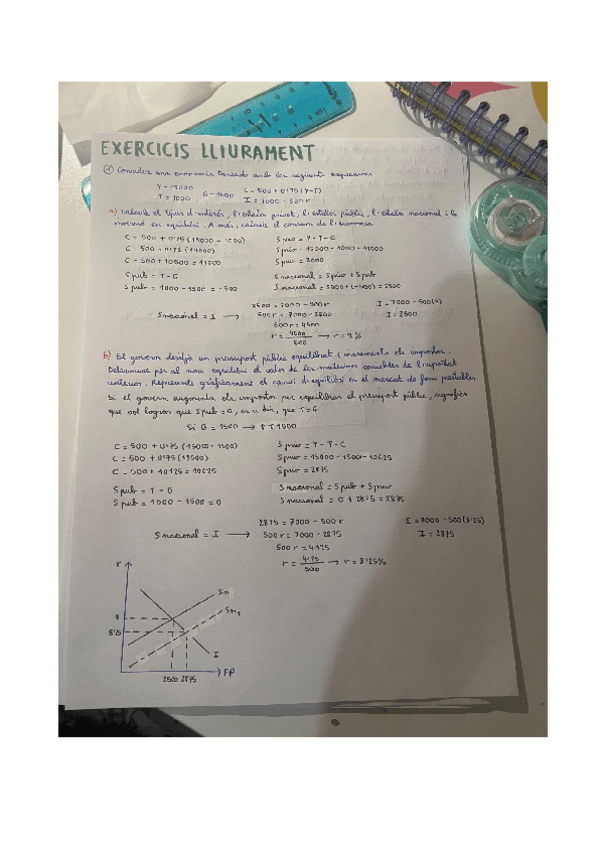 EXERCICIS LLIURAMENT
① Considera una economia tancada amb les següents expressions
Y = 15000 G = 1500 C = 500 + 0'75 (Y-T)
T = 1000 I = 7000 - 500r
a) Calcula el tipus d'interés, l'estalvi privat, l'estalvi públic, l'estalvi nacional i la
inversió en equilibri. A més, calcula el consum de l'economia.
C = 500 + 0'75 (15000 - 1000) Spriv = Y - T - C
C = 500 + 0'75 (14000) Spriv = 15000 - 1000 - 11000
C = 500 + 10500 = 11000 Spriv = 3000
Spub = T - G Snacional = Spriv + Spub
Spub = 1000 - 1500 = -500 Snacional = 3000 + (-500) = 2500
2500 = 7000 - 500r I = 7000 - 500(9)
Snacional = I → 500r = 7000 - 2500 I = 2500
500r = 4500
r = 4500/500 → r = 9%
b) El govern desitja un pressupost públic equilibrat i incrementa els impostos.
Determina per al nou equilibri el valor de les mateixes variables de l'apartat
anterior. Representa gràficament el canvi d'equilibri en el mercat de fons prestables.
Si el govern augmenta els impostos per equilibrar el pressupost públic, significa
que vol lograr que Spub = 0, es a dir, que T = G
Si G = 1500 → T 1500
C = 500 + 0'75 (15000 - 1500) Spriv = Y - T - C
C = 500 + 0'75 (13500) Spriv = 15000 - 1500 - 10625
C = 500 + 10125 = 10625 Spriv = 2875
Spub = T - G Snacional = Spub + Spriv
Spub = 1500 - 1500 = 0 Snacional = 0 + 2875 = 2875
2875 = 7000 - 500r I = 7000 - 500(8'25)
Snacional = I → 500r = 7000 - 2875 I = 2875
500r = 4125
r = 4125/500 → r = 8'25%
r
Sn
Sn₁
9
8'25
I
2500 2875
FP